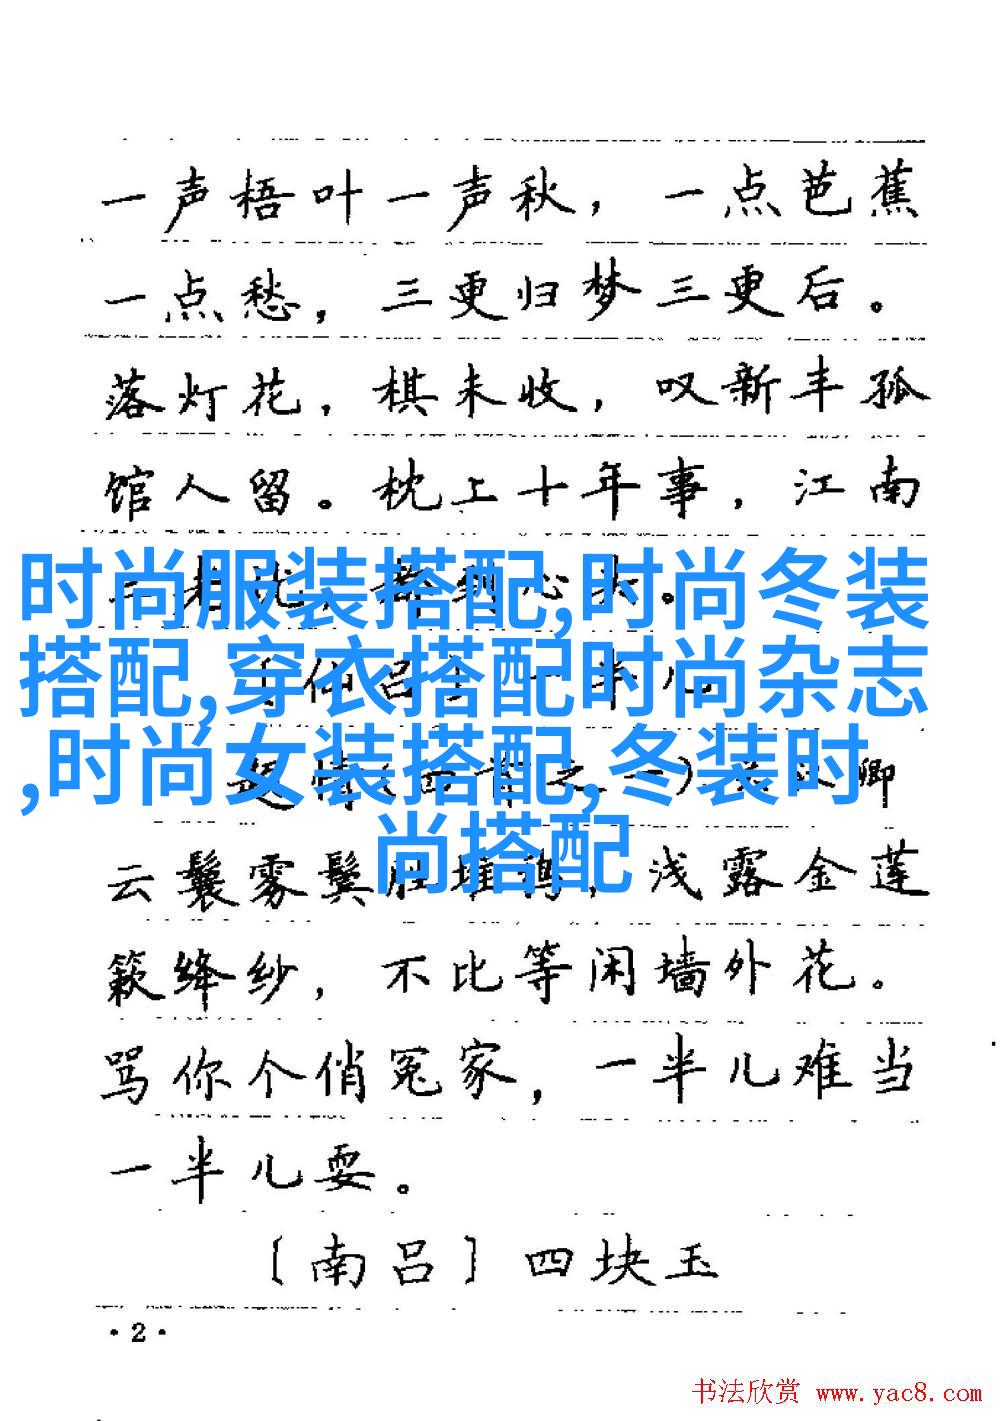 一声梧叶一声秋，一点芭蕉
一点愁，三更归梦三更后。
落灯花，棋未收，叹新丰孤
馆人留。枕上十年事，江南
时尚服装搭配,时尚冬装
搭配,穿衣搭配时尚杂志
,时尚女装搭配,冬装时
尚搭配
卿
云鬟雾鬓胜堆鸦，浅露金莲
簌绛纱，不比等闲墙外花。
骂你个俏冤家，一半儿难当
一半儿耍。
〔南吕〕四块玉
·2·
书法欣赏 www.yac8.com